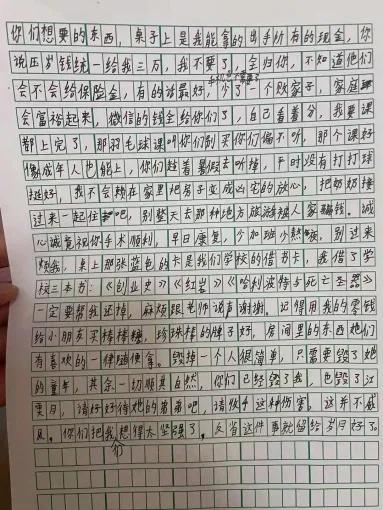 你们想要的东西，桌子上是我能拿的出手所有的现金，你
说压岁钱统一给我三万，我不要了，全归你，不知道他们
会不会给保险金，有的话最好，少了一个败家子，家庭
会富裕起来，微信的钱全给你们了，自己看着分，我要课
都上完了，那羽毛球课叫你们别买你们偏不听，那个课好
像成年人也能上，你们趁着暑假去听撞，平时没有打打球
挺好，我不会赖在家里把房子变成凶宅的放心，把奶奶接
过来一起住吧，别整天去那种地方旅游被人家骗钱。诚
心诚意祝你手术顺利，早日康复，少加班少熬夜，别过来
烦我，桌上那张蓝色的卡是我们学校的借书卡，我借了学
校三本书：《创业史》《红岩》《哈利波特与死亡圣器》
一定要帮我还掉，麻烦跟老师说声谢谢。记得用我的零钱
给小朋友买棒棒糖，珍珠棒的牌子好，房间里的东西她们
有喜欢的一律随便拿。毁掉一个人很简单，只需要毁了她
的童年，其余一切顺其自然，你们已经毁了我，也毁了江
奥月，请好好待她的弟弟吧，请收手这种伤害，这并不威
风。你们把我们想得太坚强了。反省这件事就留给岁月好了。